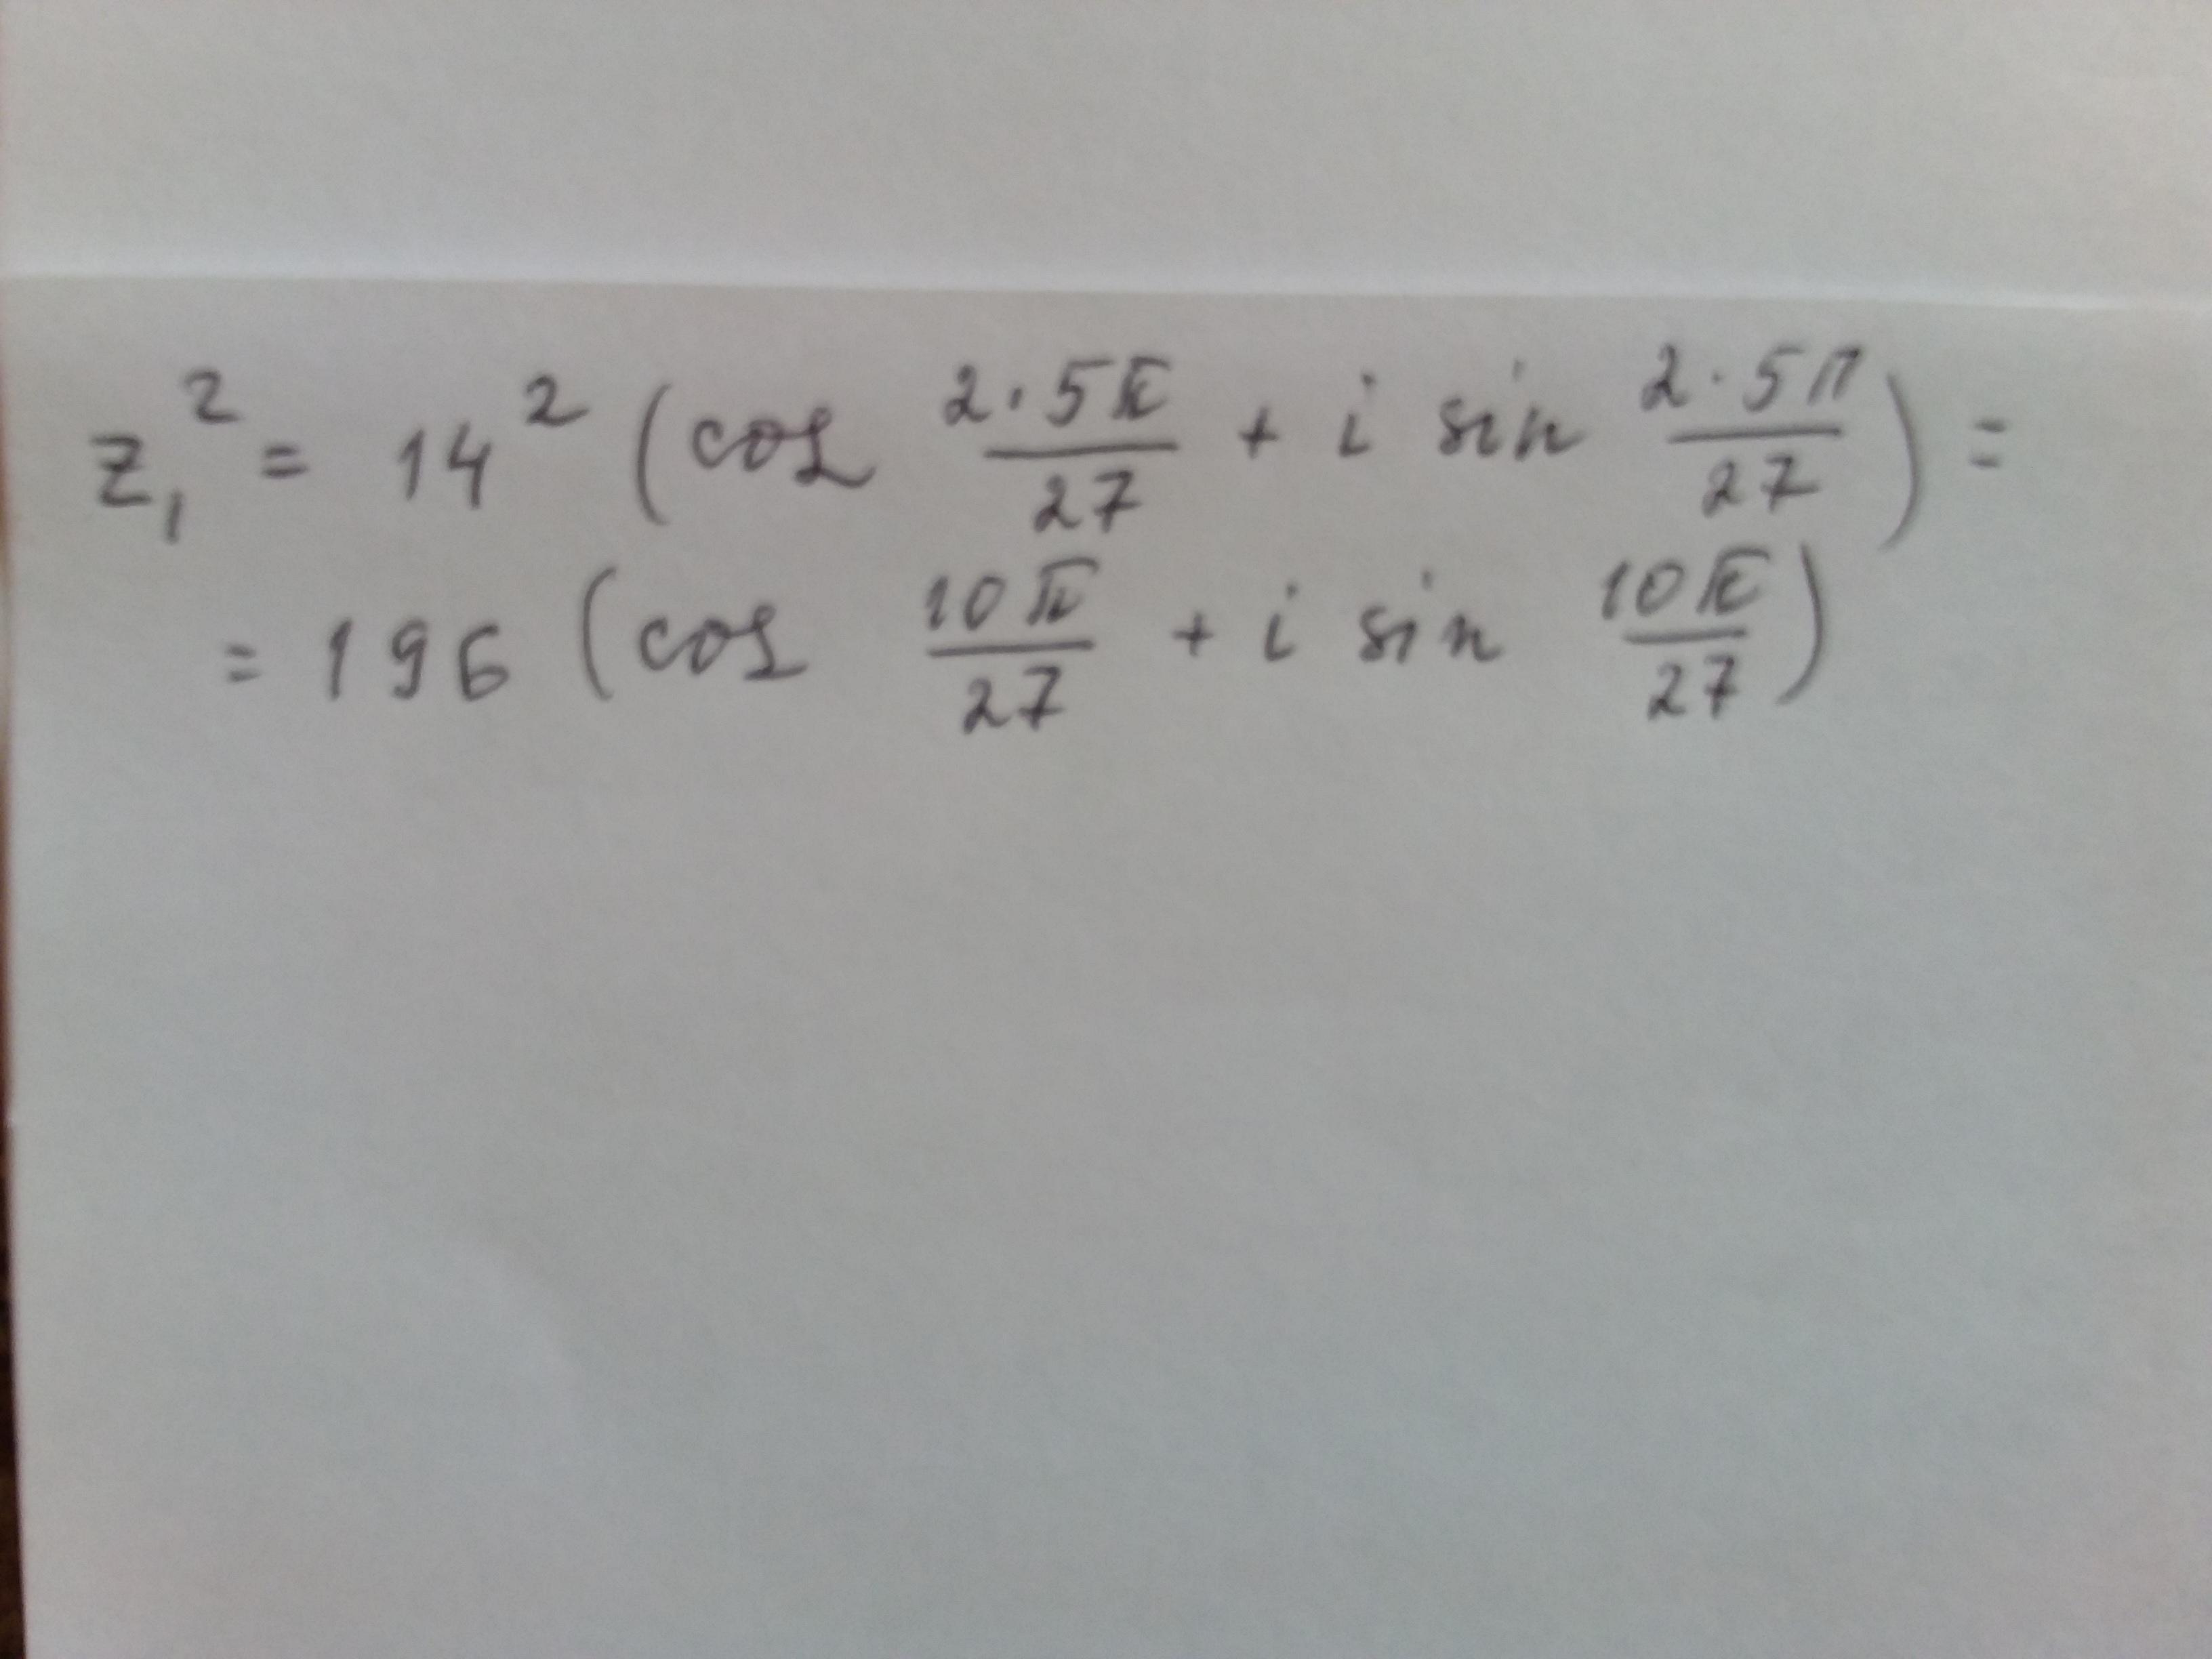 z₁² = 14² (cos 2·5π/27 + i sin 2·5π/27) =
= 196 (cos 10π/27 + i sin 10π/27)